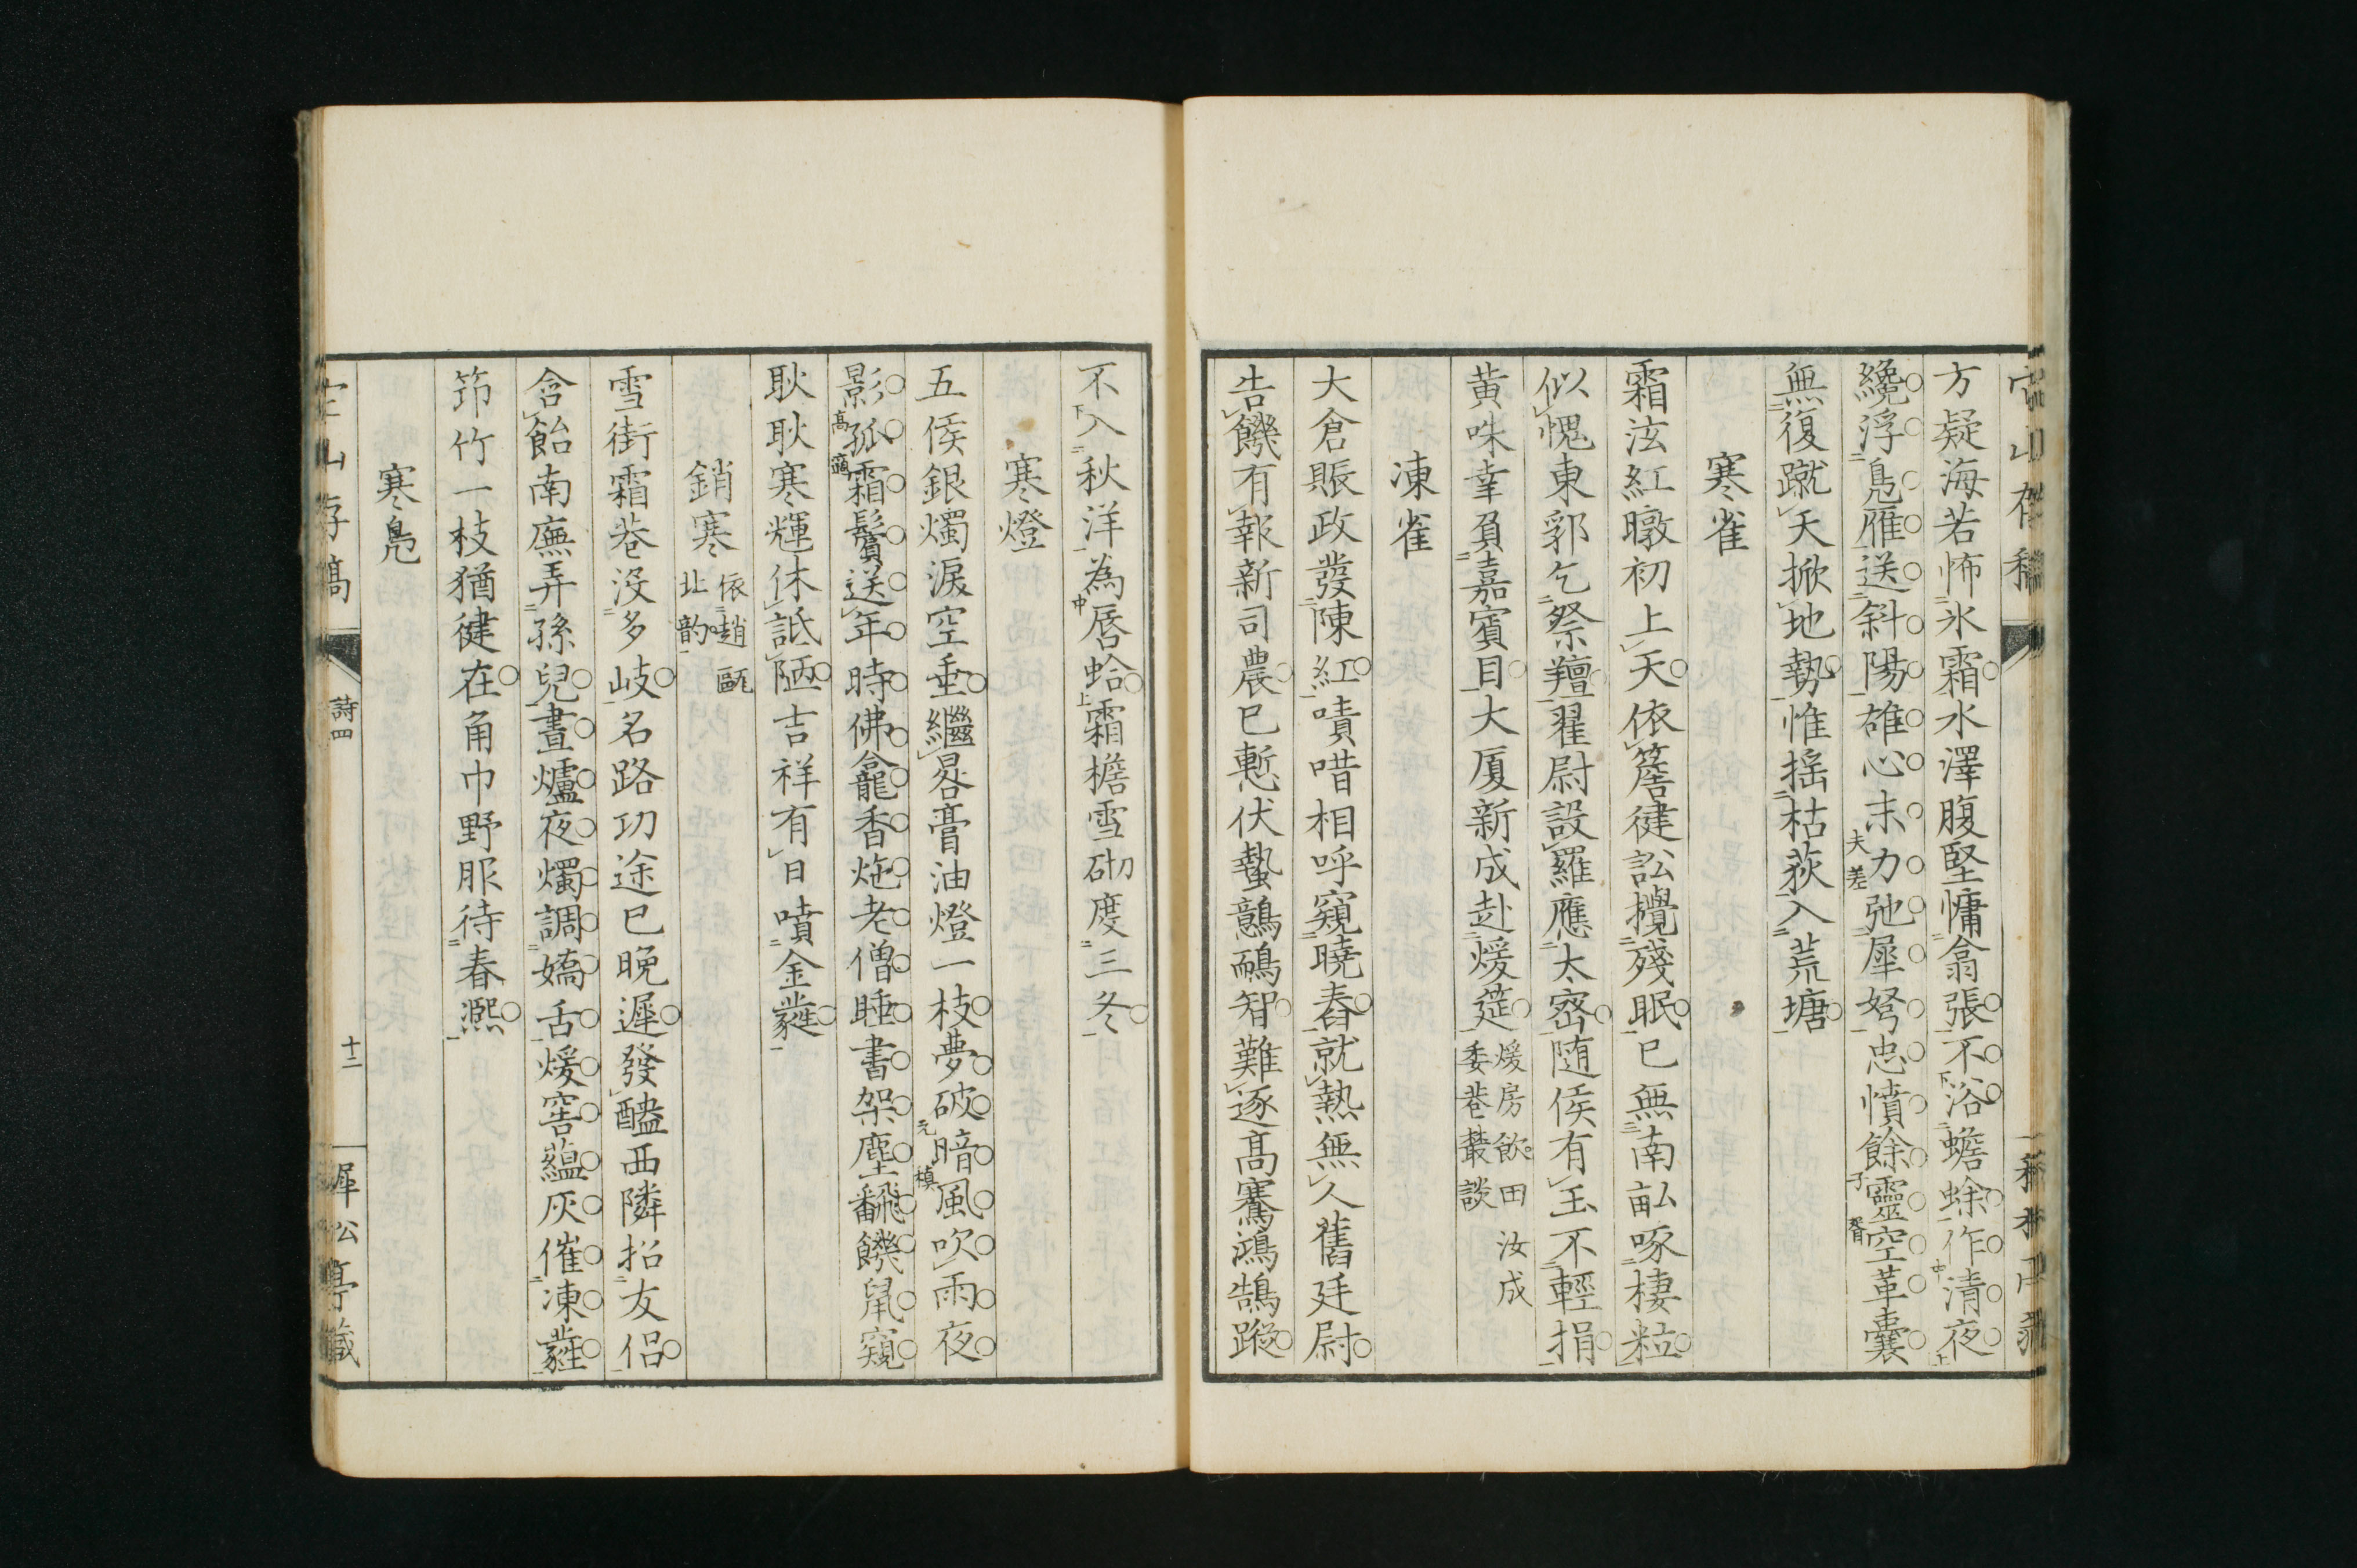 方疑海若怖氷霜水澤腹堅慵翕張不浴蟾蜍作清夜
纔浮鳧雁送斜陽雄心未力弛犀弩忠憤餘靈空革囊
夫差
子胥
無復蹴天掀地勢惟搖枯荻入荒塘
寒雀
霜泫紅暾初上天依簷健訟攪殘眠已無南畝啄棲粒
似愧東郭乞祭羶翟尉設羅應太密随侯有玉不輕捐
黄咮幸負嘉賓目大厦新成赴煖筵
煖房飲田汝成
委巷叢談
凍雀
大倉賑政發陳紅嘖唶相呼窺曉舂就熱無人舊廷尉
告饑有報新司農已慙伏蟄鷾鴯智難逐髙騫鴻鵠蹤
不入秋洋為唇蛤霜檐雪砌度三冬
寒燈
五侯銀燭淚空垂繼晷膏油燈一枝夢破暗風吹雨夜
元稹
影孤霜鬢送年時佛龕香灺老僧睡書架塵飜饑鼠窺
髙適
耿耿寒輝休詆陋吉祥有日噴金蕤
銷寒
依趙甌
北韵
雪街霜巷没多岐名路功途已晩遲發醠西隣招友侶
含飴南廡弄孫兒晝爐夜燭調嬌舌煖窖蘊灰催凍蕤
笻竹一枝猶健在角巾野服待春凞
寒鳧
山存稿
詩四
十二
犀公亭藏